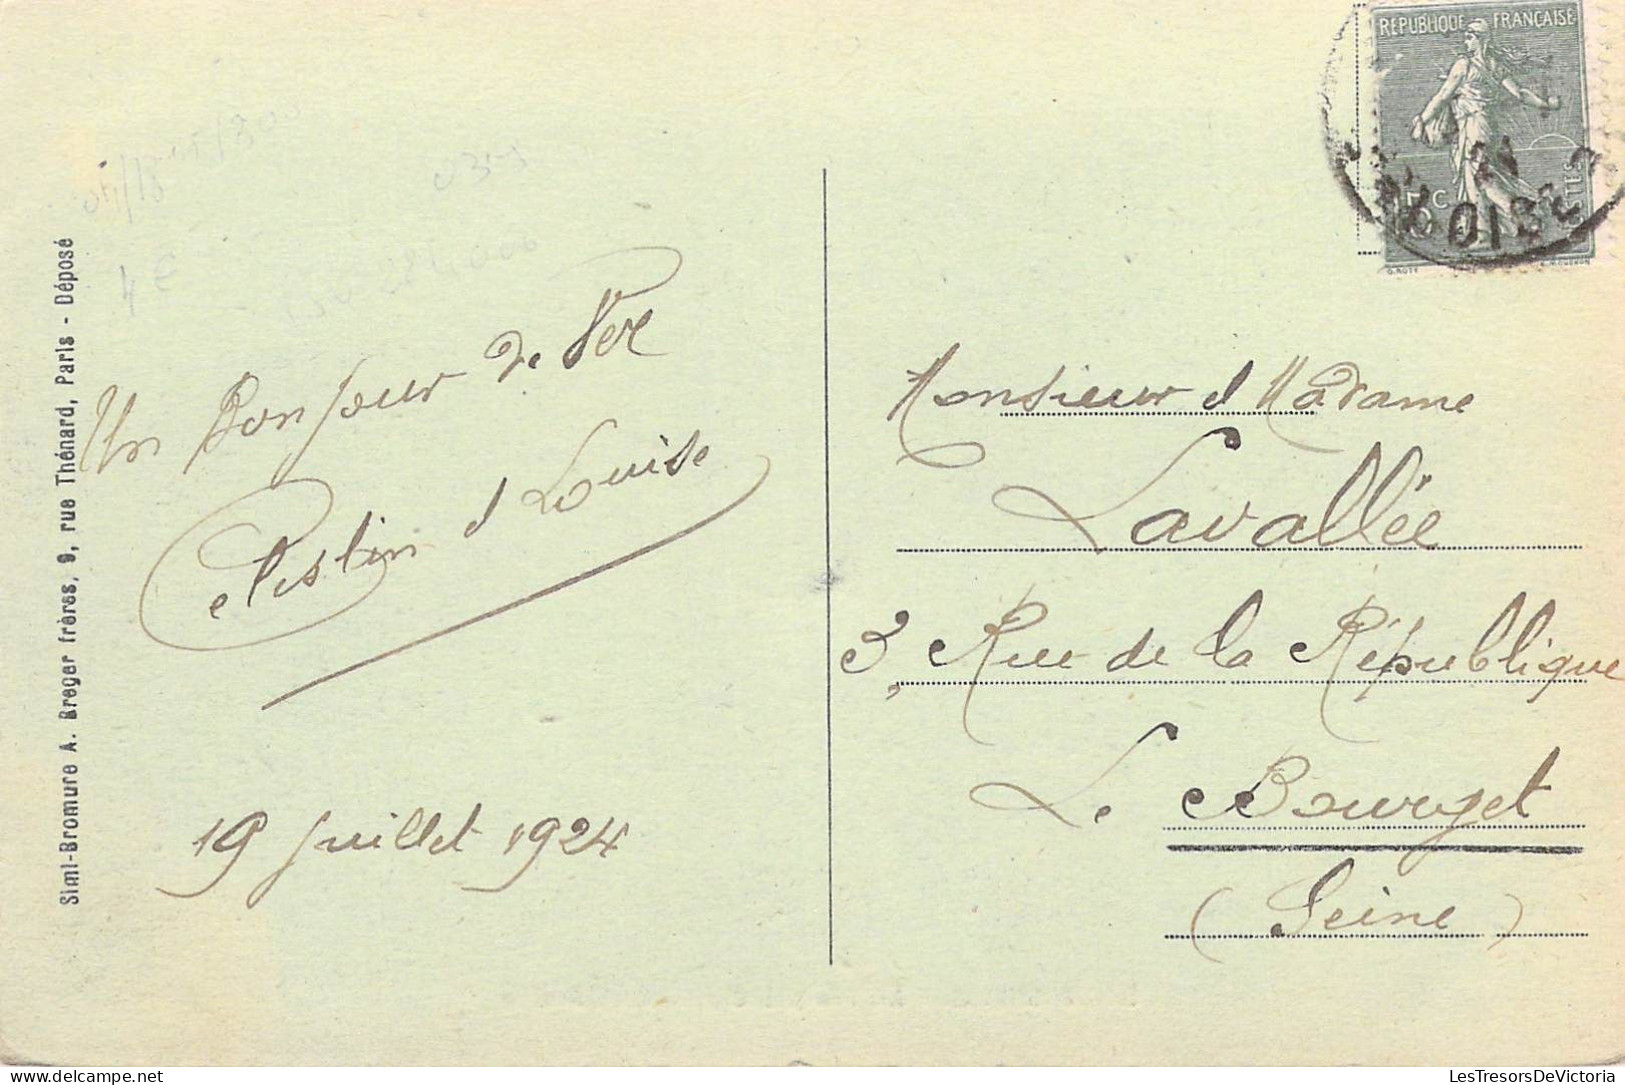 Simi-Bromure A. Breger frères, 9, rue Thénard, Paris - Déposé
Un Bonjour de Ver
Célestin et Louise
19 Juillet 1924
REPUBLIQUE FRANÇAISE
15 C
POSTES
O. ROTY
E. MOUCHON
OISE
Monsieur et Madame
Lavallée
3, Rue de la République
Le Bourget
(Seine)
LesTresorsDeVictoria.com